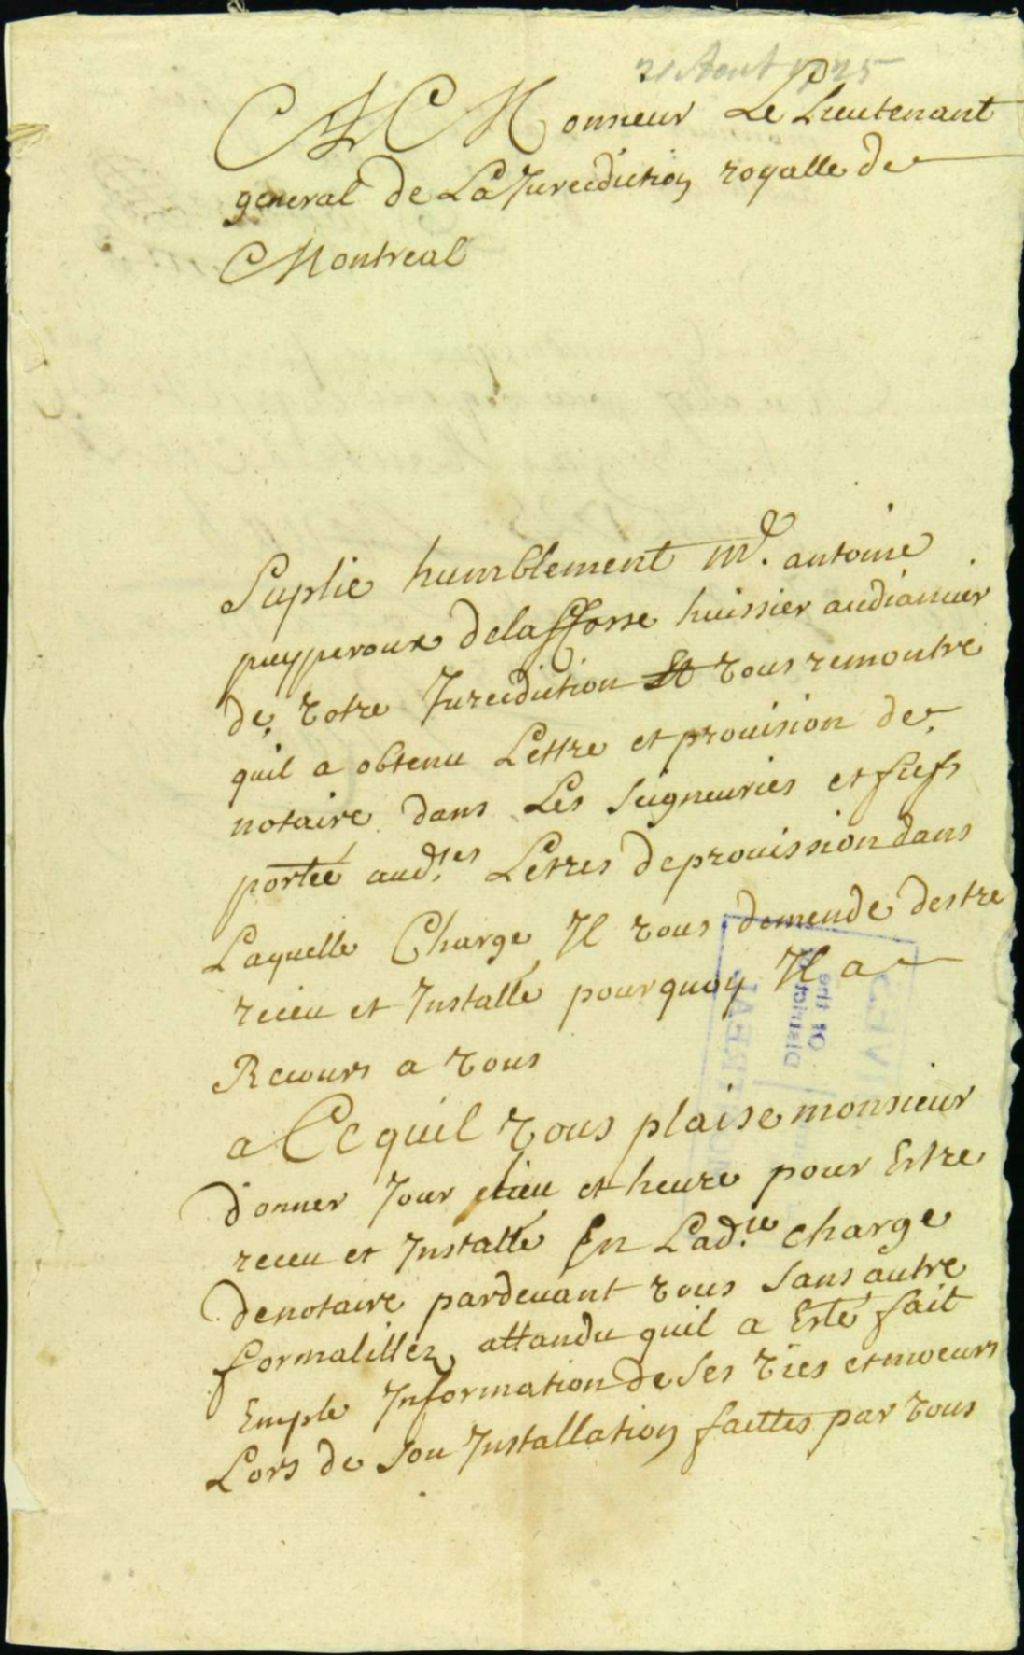 21 Aout 1725
A Monsieur Le Lieutenant
general de La Jurediction royalle de
Montreal
Suplie humblement me. antoine
puypperoux delafforse huissier audiancier
de votre Jurediction Et vous remontre
quil a obtenu Lettre et prouision de
notaire dans Les seigneuries et fiefs
portée aud.tes Letres de prouission dans
Laquelle Charge Il vous demende destre
receu et Installé pourquoy Il a
Recours a vous
a Ce quil vous plaise monsieur
donner Jour et heure pour Estre
receu et Installé En Lad.te charge
de notaire pardeuant vous sans autre
formalillez attandu quil a Esté fait
Emple Information de ses vies et moeurs
Lors de son Installation faittes par vous